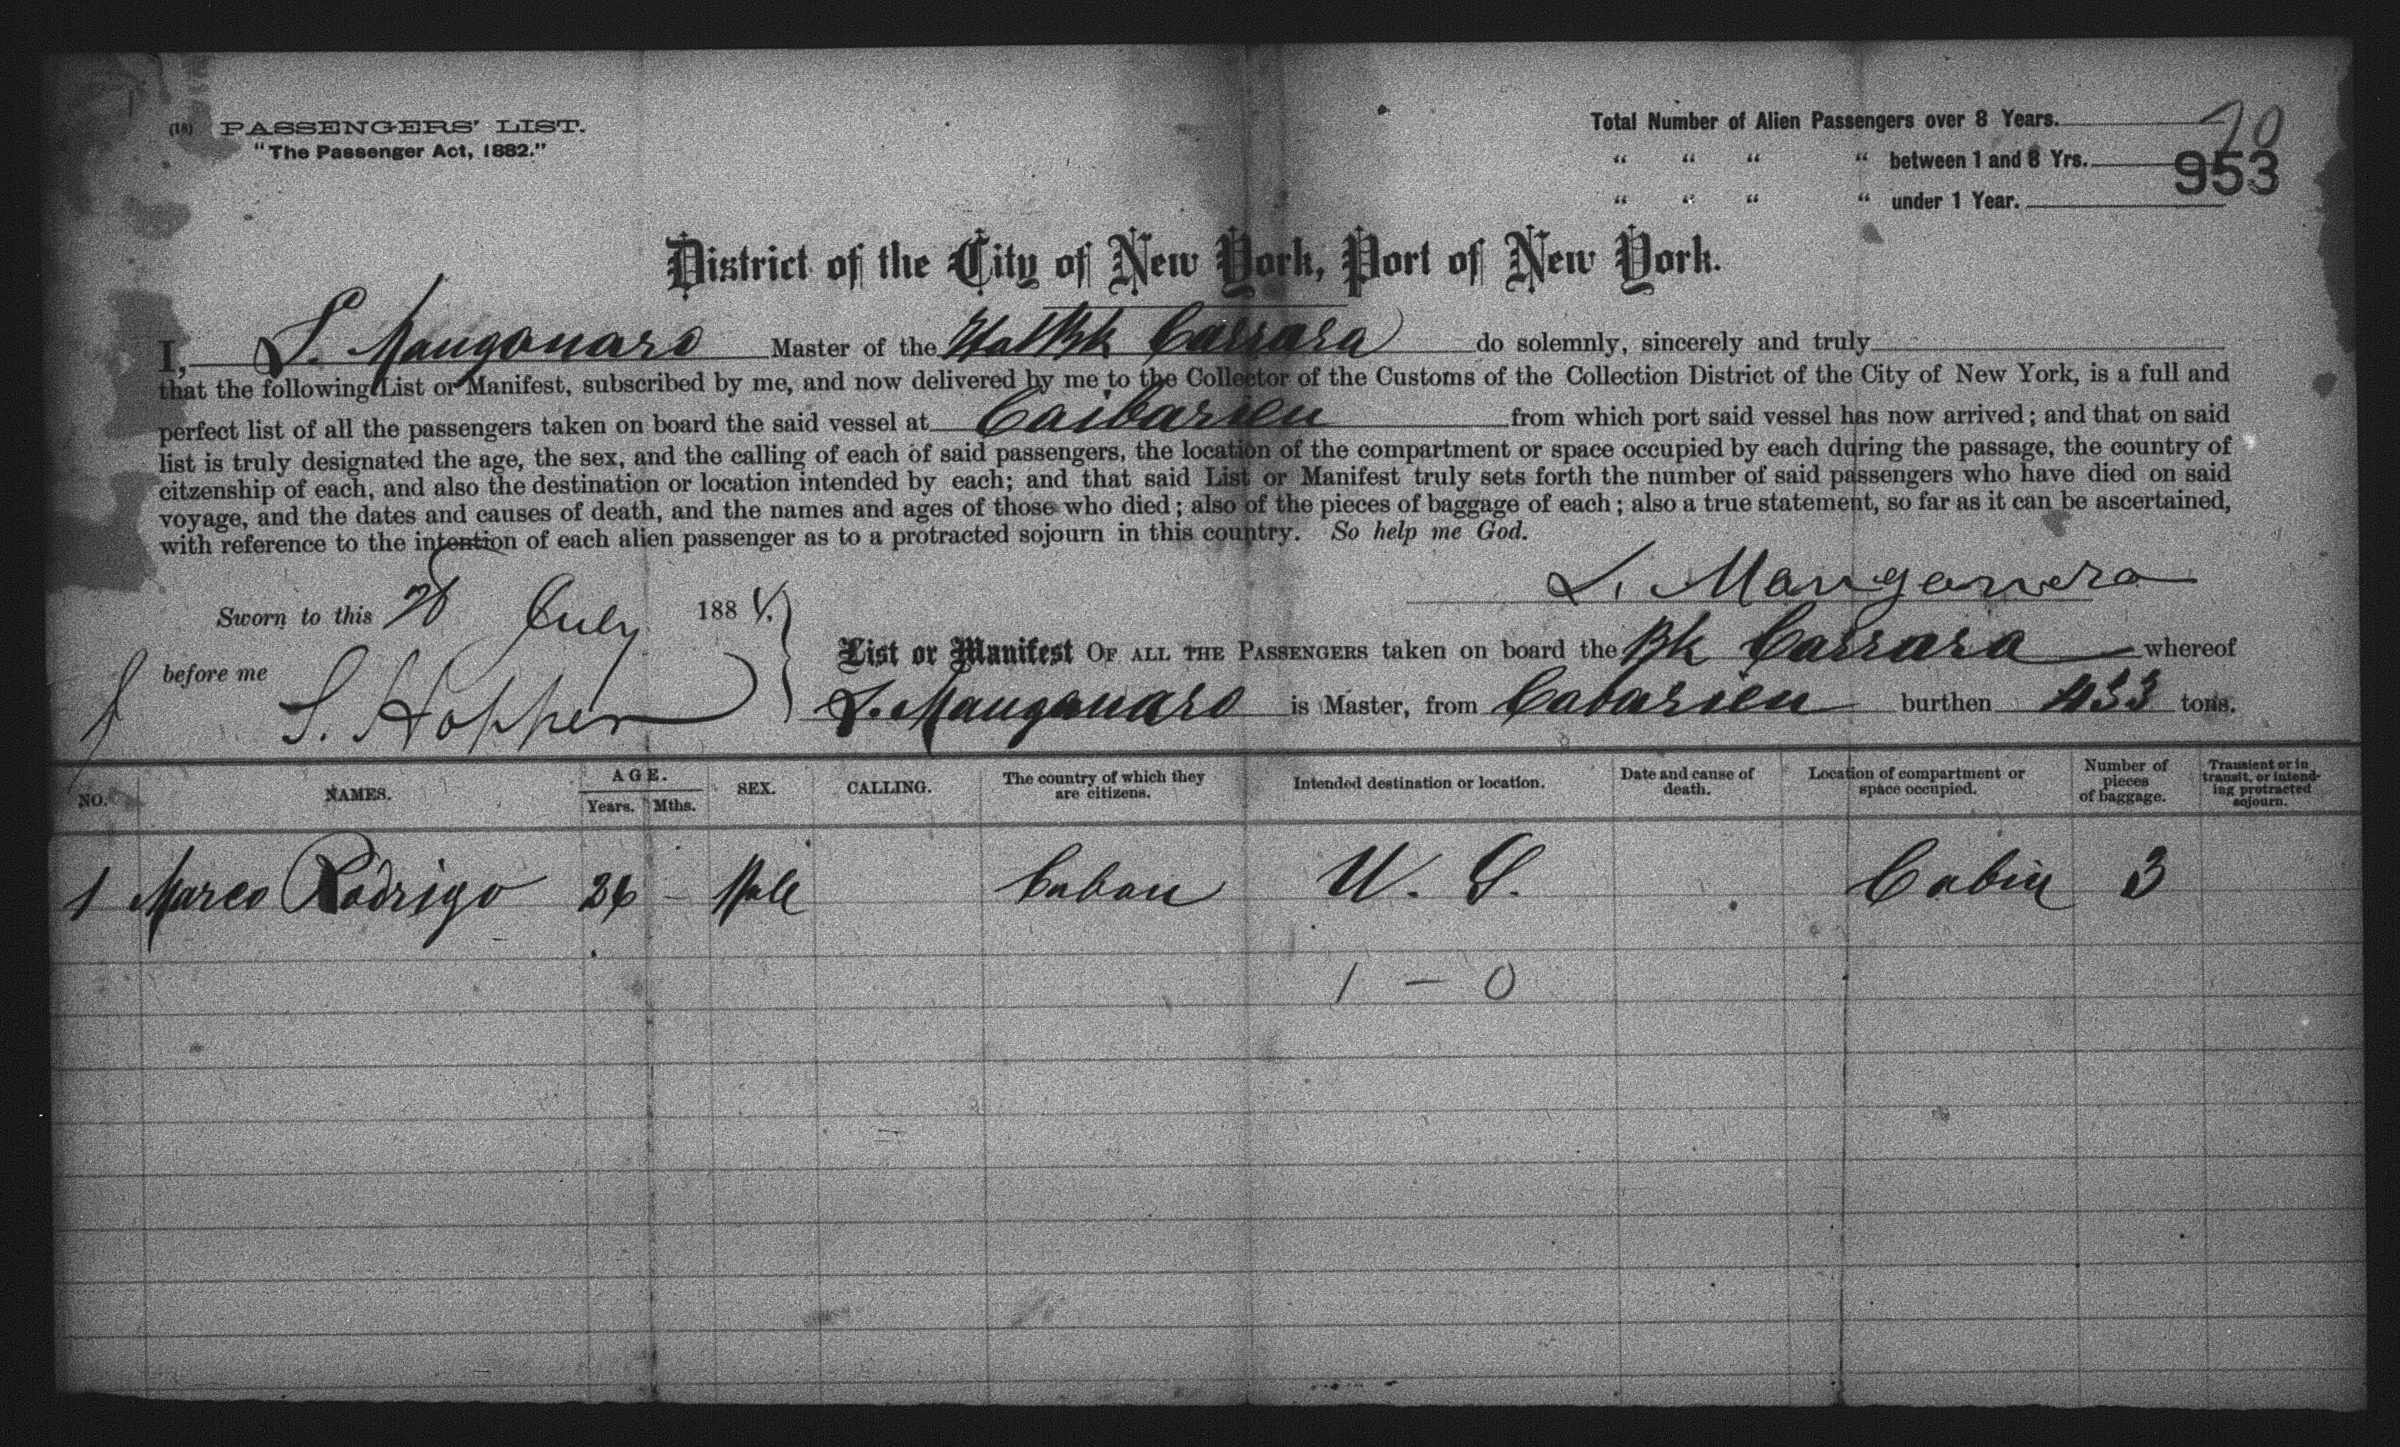 (18) PASSENGERS' LIST.
"The Passenger Act, 1882."
Total Number of Alien Passengers over 8 Years.
" " " " between 1 and 8 Yrs.
" " " " under 1 Year.
70
953
District of the City of New York, Port of New York.
I, L. Manganaro Master of the Ital Bk Carrara do solemnly, sincerely and truly
that the following List or Manifest, subscribed by me, and now delivered by me to the Collector of the Customs of the Collection District of the City of New York, is a full and
perfect list of all the passengers taken on board the said vessel at Caibarien from which port said vessel has now arrived; and that on said
list is truly designated the age, the sex, and the calling of each of said passengers, the location of the compartment or space occupied by each during the passage, the country of
citzenship of each, and also the destination or location intended by each; and that said List or Manifest truly sets forth the number of said passengers who have died on said
voyage, and the dates and causes of death, and the names and ages of those who died; also of the pieces of baggage of each; also a true statement, so far as it can be ascertained,
with reference to the intention of each alien passenger as to a protracted sojourn in this country. So help me God.
L. Manganaro
Sworn to this 28 July 1884.
before me S. Hopper
List or Manifest OF ALL THE PASSENGERS taken on board the Bk Carrara whereof
L. Manganaro is Master, from Cabarien burthen 433 tons.
NO. NAMES. AGE. Years. Mths. SEX. CALLING. The country of which they are citizens. Intended destination or location. Date and cause of death. Location of compartment or space occupied. Number of pieces of baggage. Transient or in transit, or intending protracted sojourn.
1 Marco Rodrigo 26 – Male Cuban U. S. Cabin 3
1 – 0